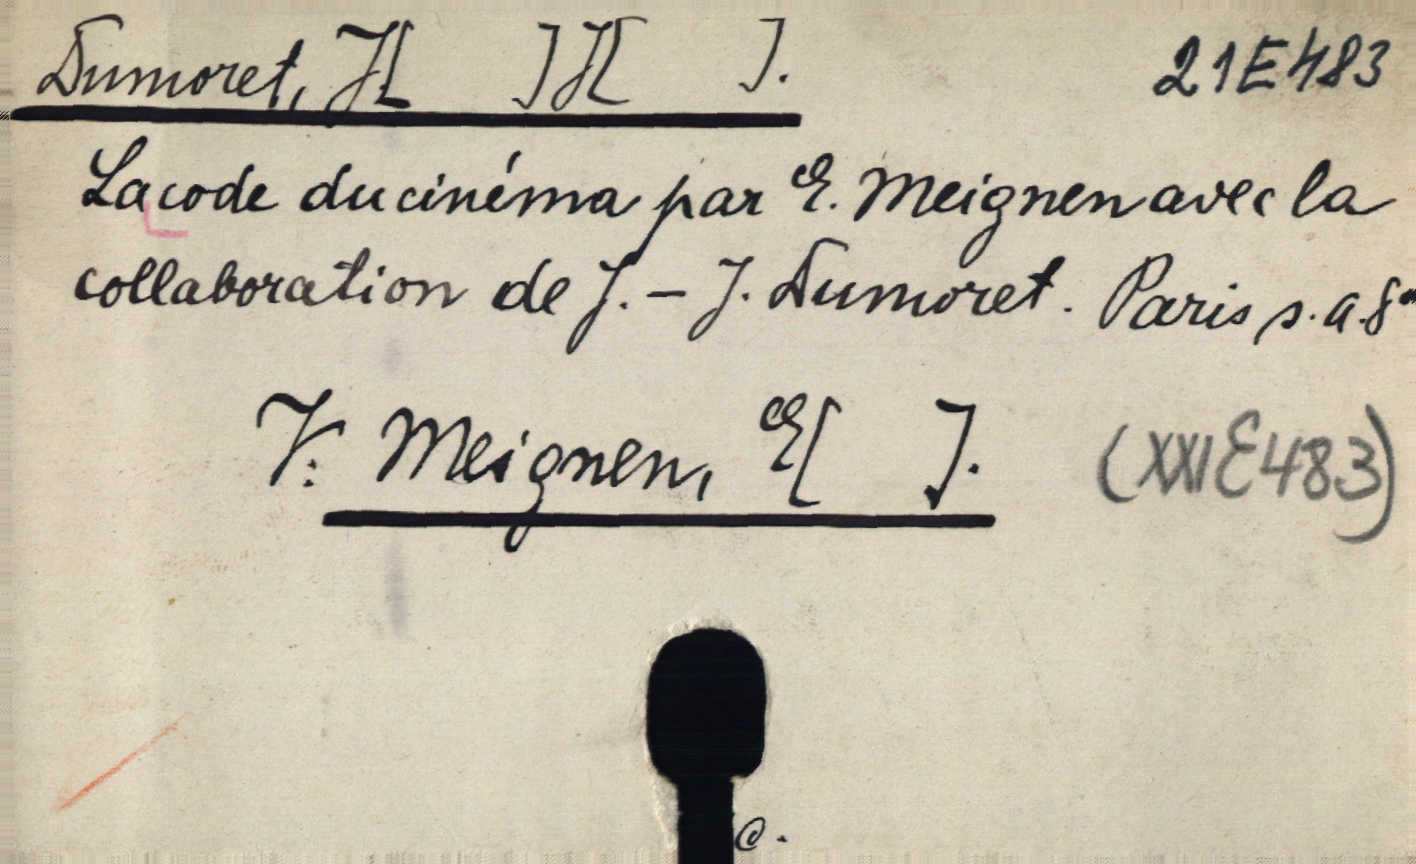 Dumoret, J[ ] J[ ].
21E483
La code du cinéma par E. Meignen avec la
collaboration de J. – J. Dumoret. Paris, s. a. 8°
V: Meignen, E[ ].
(XXI E 483)
C.